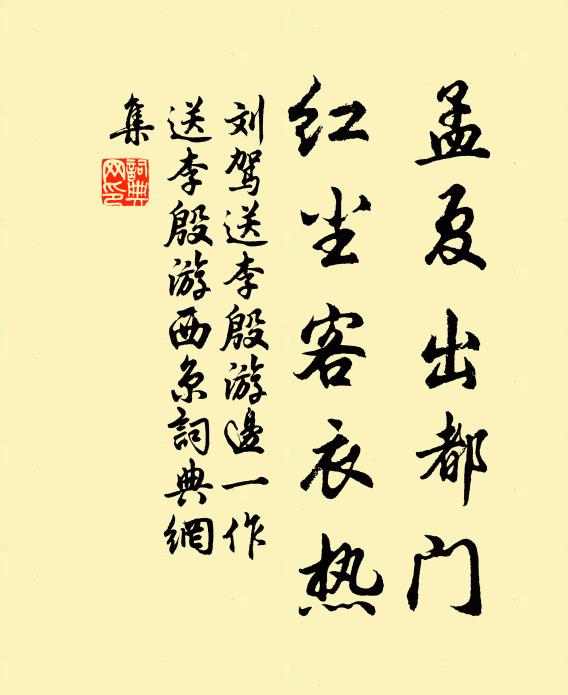 孟夏出都门
红尘客衣热
刘驾送李殷游邊一作
送李殷游西京詞典網
集
詞典
网印